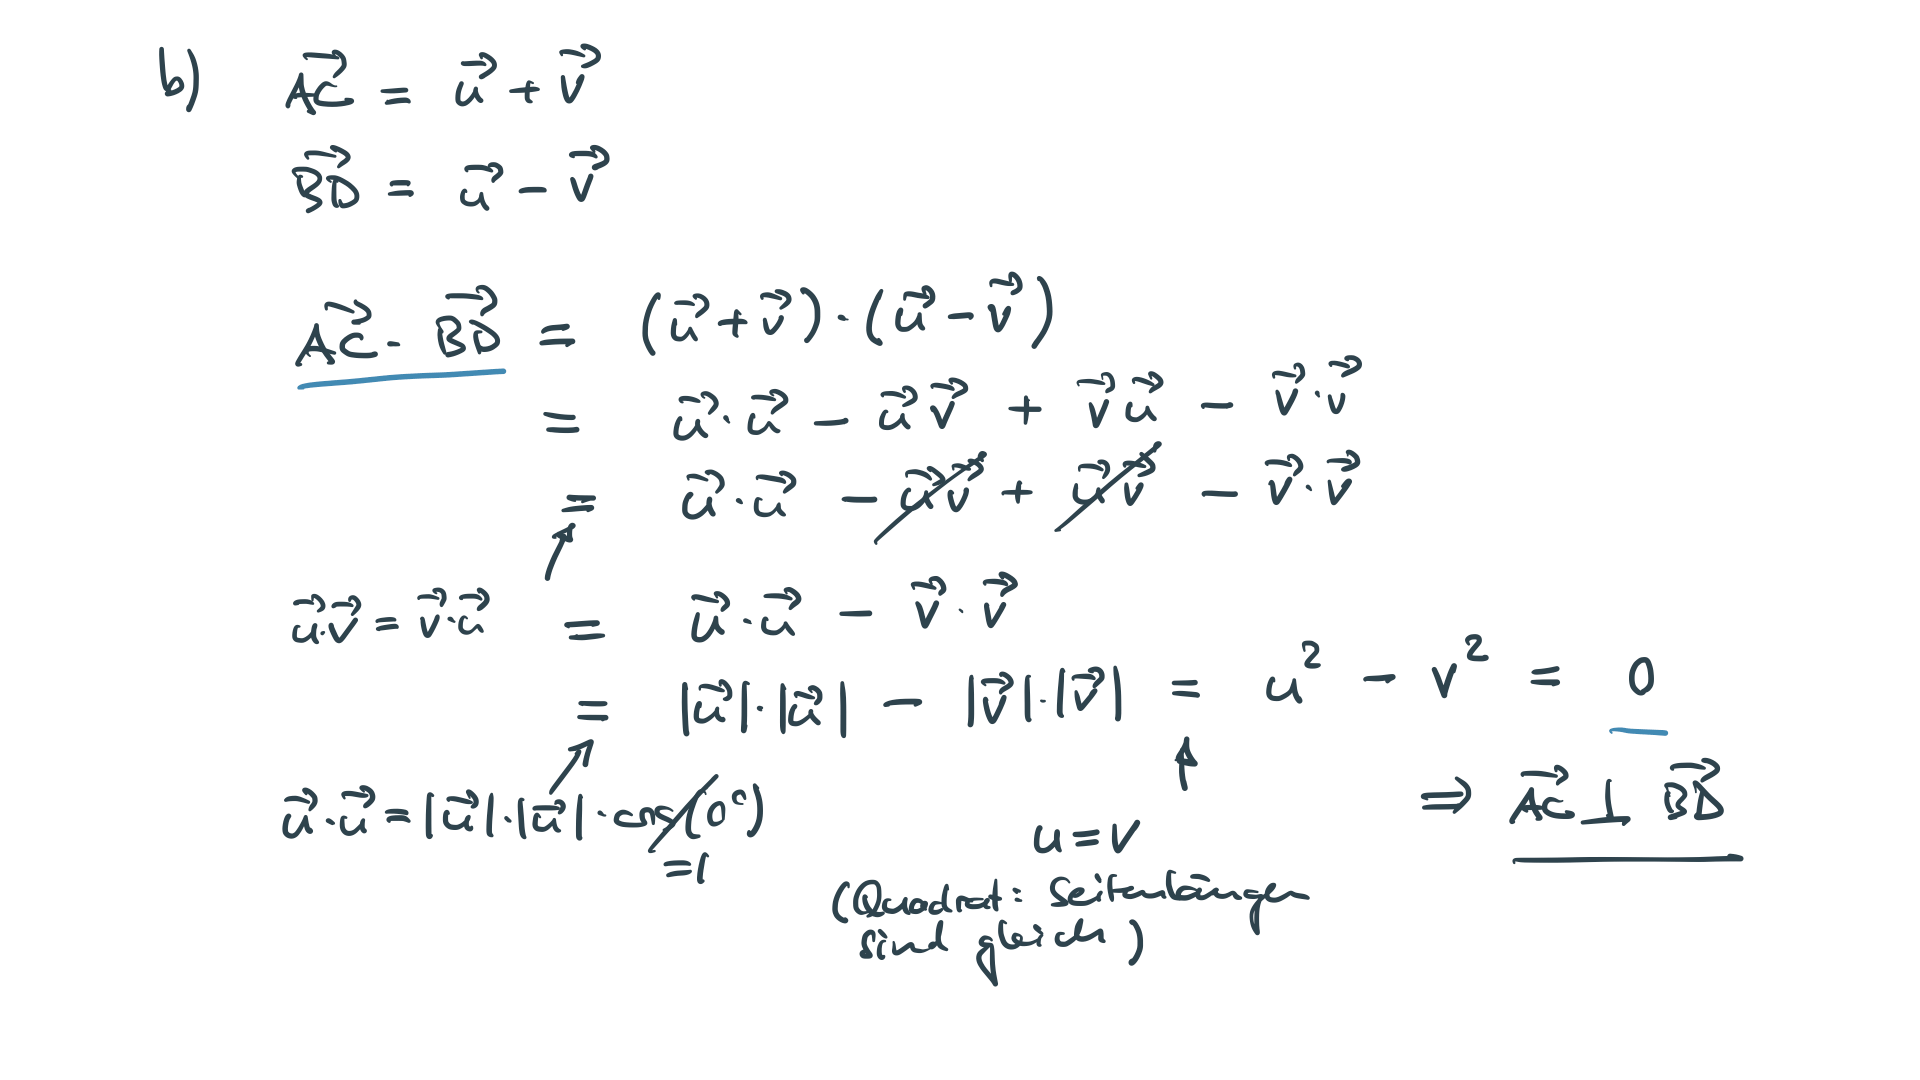 b) →AC = →u + →v
→BD = →u − →v
→AC · →BD = (→u + →v) · (→u − →v)
= →u · →u − →u →v + →v →u − →v · →v
= →u · →u − →u →v + →u →v − →v · →v
→u · →v = →v · →u
= →u · →u − →v · →v
= |→u| · |→u| − |→v| · |→v| = u² − v² = 0
→u · →u = |→u| · |→u| · cos(0°)
=1
⇒ →AC ⊥ →BD
u = v
(Quadrat: Seitenlängen
sind gleich)